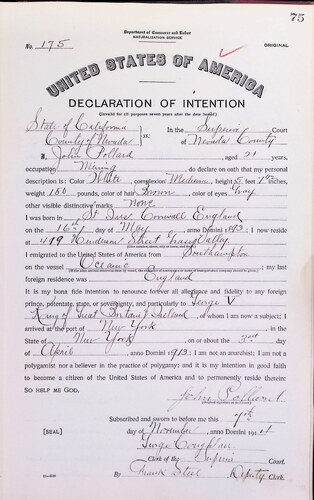 75
Department of Commerce and Labor
NATURALIZATION SERVICE
No. 175 ORIGINAL
UNITED STATES OF AMERICA
DECLARATION OF INTENTION
(Invalid for all purposes seven years after the date hereof)
State of California
County of Nevada ss: In the Superior Court of Nevada County
I, John Pollard, aged 21 years,
occupation Mining, do declare on oath that my personal
description is: Color White, complexion Medium, height 5 feet 7 inches,
weight 160 pounds, color of hair Brown, color of eyes Gray
other visible distinctive marks None
I was born in St Ives Cornwall England
on the 16th day of May, anno Domini 1893; I now reside
at 419 Henderson Street Grass Valley
I emigrated to the United States of America from Southampton
on the vessel Oceanic; my last
foreign residence was England
It is my bona fide intention to renounce forever all allegiance and fidelity to any foreign
prince, potentate, state, or sovereignty, and particularly to George V
King of Great Britain & Ireland, of whom I am now a subject; I
arrived at the port of New York, in the
State of New York, on or about the 3rd day
of April, anno Domini 1913; I am not an anarchist; I am not a
polygamist nor a believer in the practice of polygamy; and it is my intention in good faith
to become a citizen of the United States of America and to permanently reside therein:
SO HELP ME GOD.
John Pollard
Subscribed and sworn to before me this 7th
[SEAL] day of November, anno Domini 1914
George Coughlan
Clerk of the Superior
By Frank Steel Deputy Clerk.